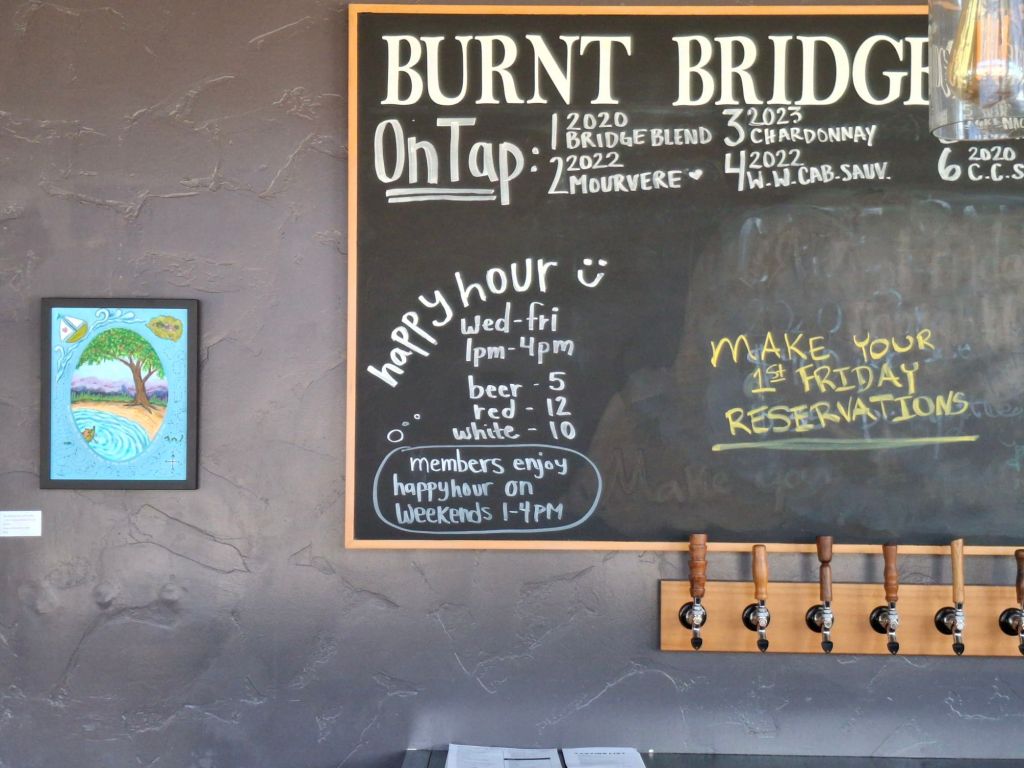 BURNT BRIDGE
On Tap:
1 2020 BRIDGE BLEND
2 2022 MOURVERE
3 2023 CHARDONNAY
4 2022 W.W. CAB. SAUV.
6 2020 C.C.S
happy hour
wed-fri
1pm-4pm
beer - 5
red - 12
white - 10
members enjoy
happyhour on
weekends 1-4PM
MAKE YOUR
1st FRIDAY
RESERVATIONS